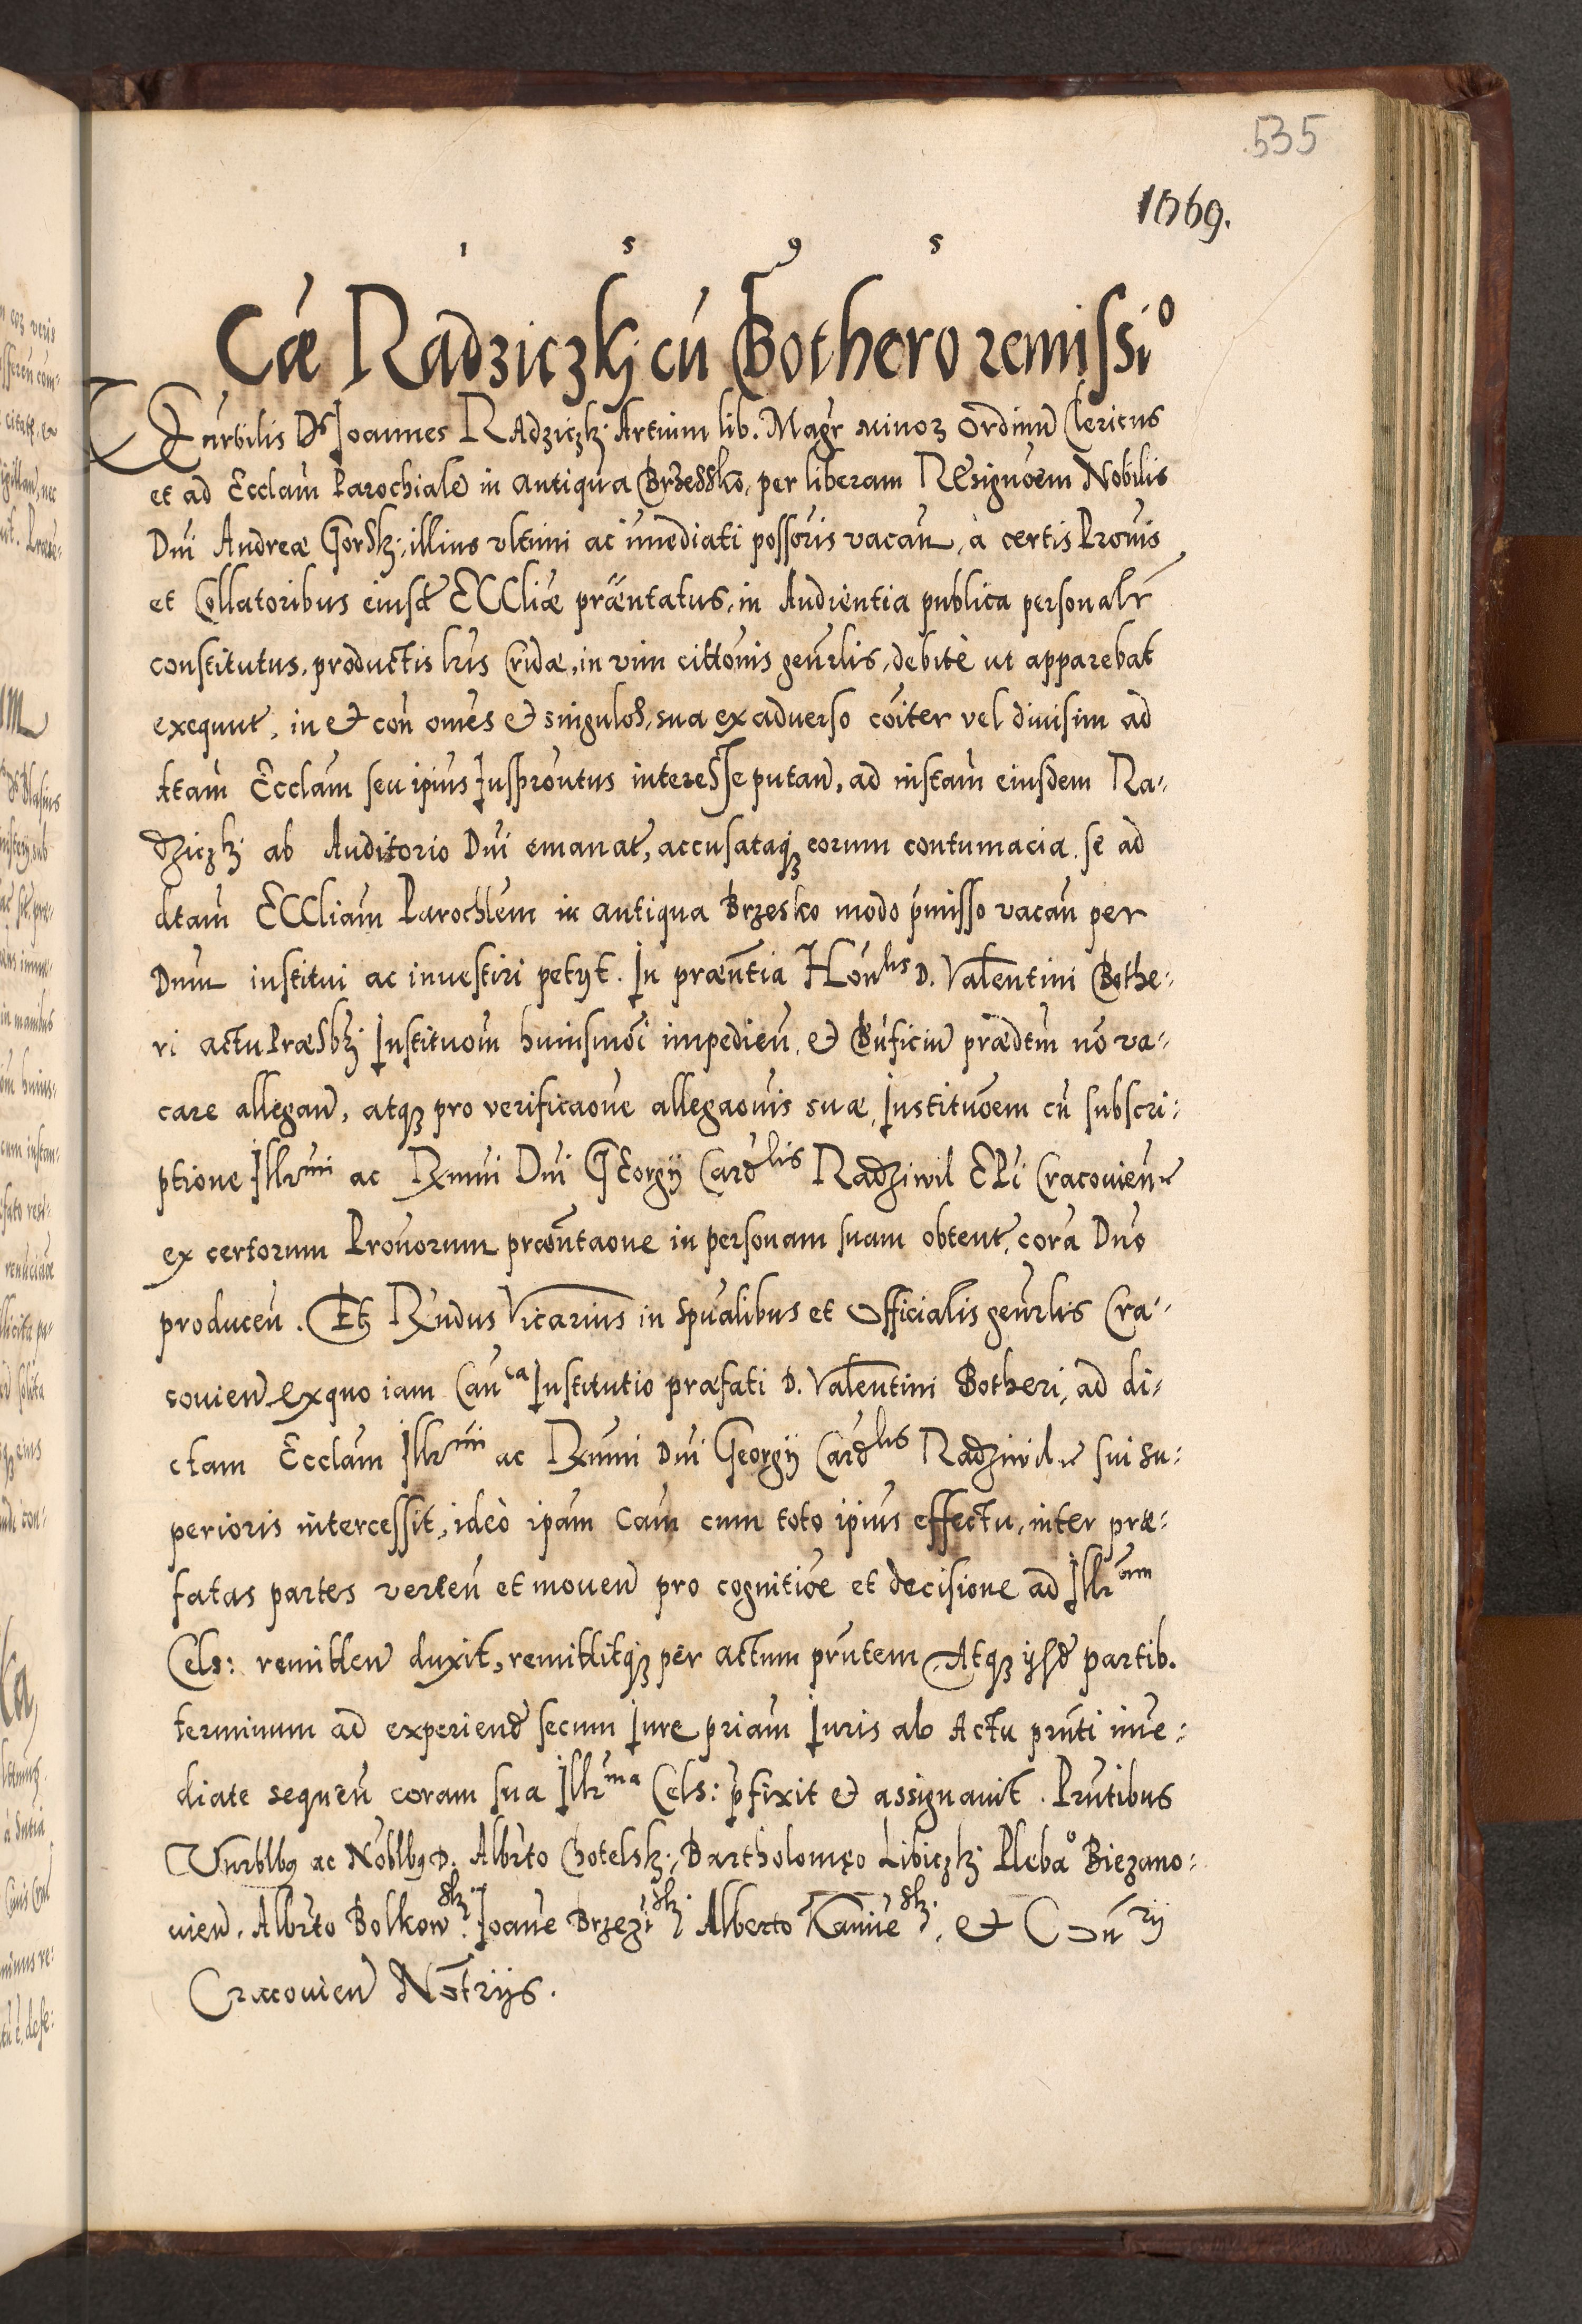 535
1069.
1 5 9 5
Cæ Radziczkj cū Bothero remissio
Vnrbilis Ds Joannes Radziczkj Artium lib. Magr minoꝝ ordinū Clericus
et ad Ecclam Parochiale in antiqua Brzessko, per liberam Resignoem Nobilis
Dni Andreæ Gorskj, illius vltimi ac imediati possoris vacan, à certis Pronis
et Collatoribus eiusd Eccliæ præntatus, in Audientia publica personalr
constitutus, productis lris Cridæ, in vim cittonis genrlis, debitè ut apparebat
exequut, in et con omes et singulos, sua ex aduerso coiter vel diuisim ad
dtam Ecclam seu ipius Jusprontus interesse putan, ad instam eiusdem Ra-
dziczkj ab Auditorio Dni emanat, accusataqꝫ eorum contumacia, se ad
dtam Eccliam Parochlem in antiqua Brzesko modo pmisso vacan per
Dnum institui ac inuestiri petijt. In præntia Honlis D. Valentini Bothe-
ri actu Præsbꝫ Instituom huiusmoi impedien, et Bnficiu prædtm no va-
care allegan, atqꝫ pro verificaone allegaonis suæ, Institutoem cu subscri-
ptione Illrmi ac Rxmi Dni Georgij Cardlis Radziwil Epi Cracouien
ex certorum Pronorum præntaone in personam suam obtent, cora Dno
producen. Et Rndus Vicarius in spualibus et Officialis genrlis Cra-
couien ex quo iam Canca Institutio præfati D. Valentini Botheri, ad di-
ctam Ecclam Illrmi ac Rxmi Dni Georgij Cardlis Radziwil sui su-
perioris intercessit, ideò ipam Cam cum toto ipius effectu, inter præ-
fatas partes verten et mouen pro cognitioe et decisione ad Illram
Cels: remitten duxit, remittitqꝫ per actum prntem Atqꝫ ijsd partib.
terminum ad experiend secum Jure priam Juris ab Actu prnti ime-
diate sequen coram sua Illrma Cels: pfixit et assignauit. Prntibus
Vnrblbꝫ ac Noblbꝫ D. Albrto Chotelskj, Bartholomęo Libiczkj Plebao Biezano-
uien. Albrto Bolkowskj. Joane Brzeziskj Alberto Kamieskj, et Conrij
Cracouien Notrijs.